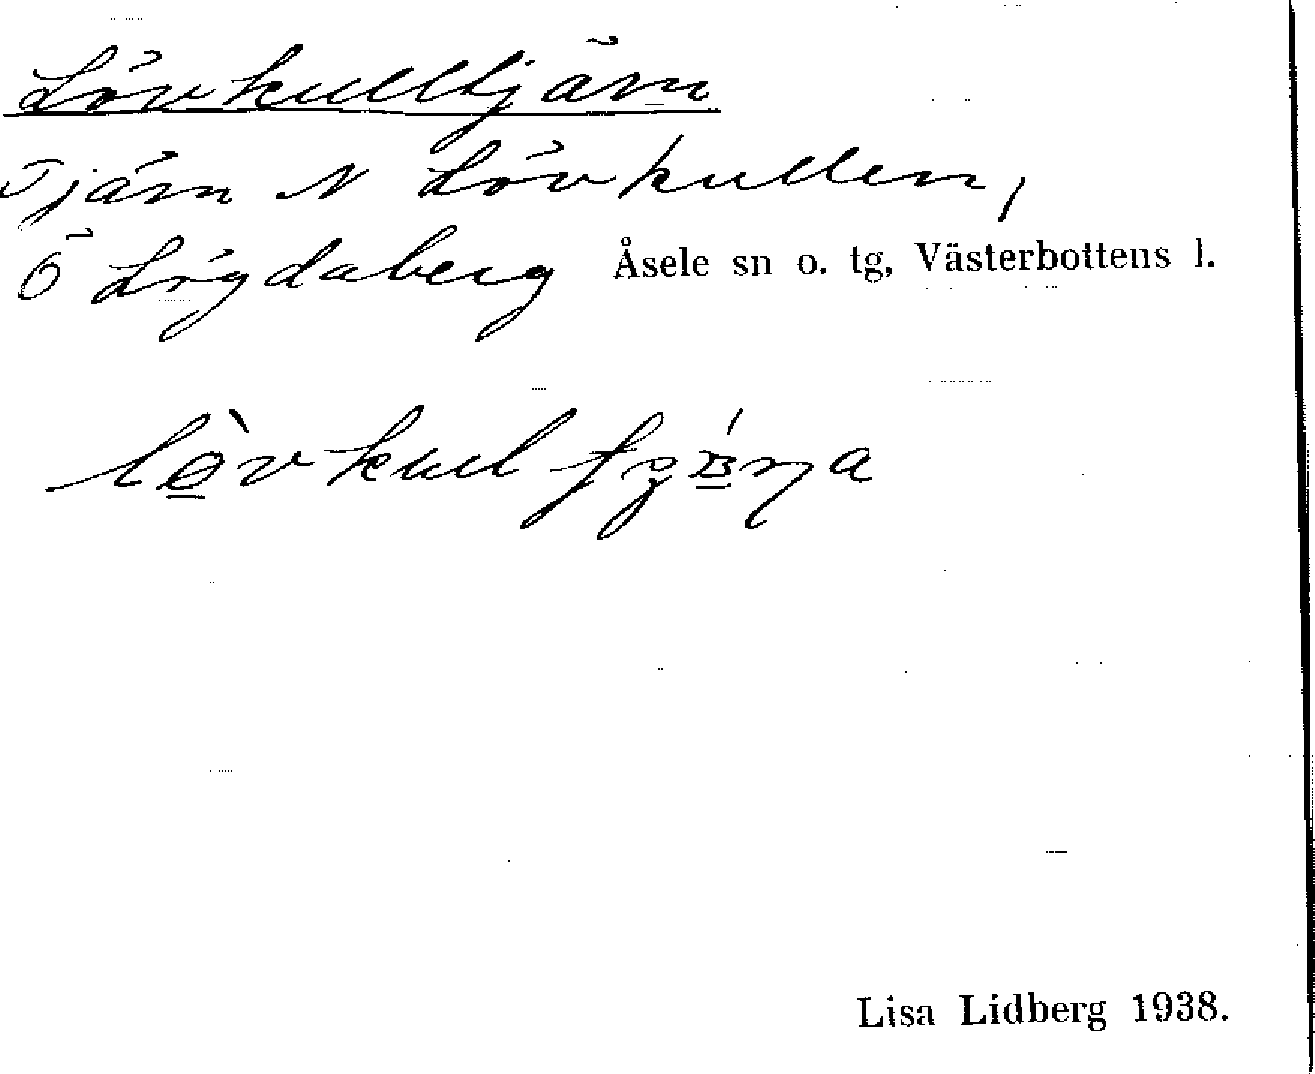 Lövkulltjärn
Tjärn N Lövkullen,
Ö Lögdaberg Åsele sn o. tg, Västerbottens l.
Lisa Lidberg 1938.